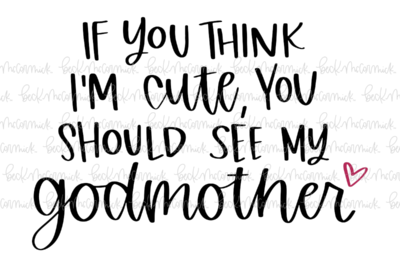 IF YOU THINK
I'M CUTE, YOU
SHOULD SEE MY
godmother